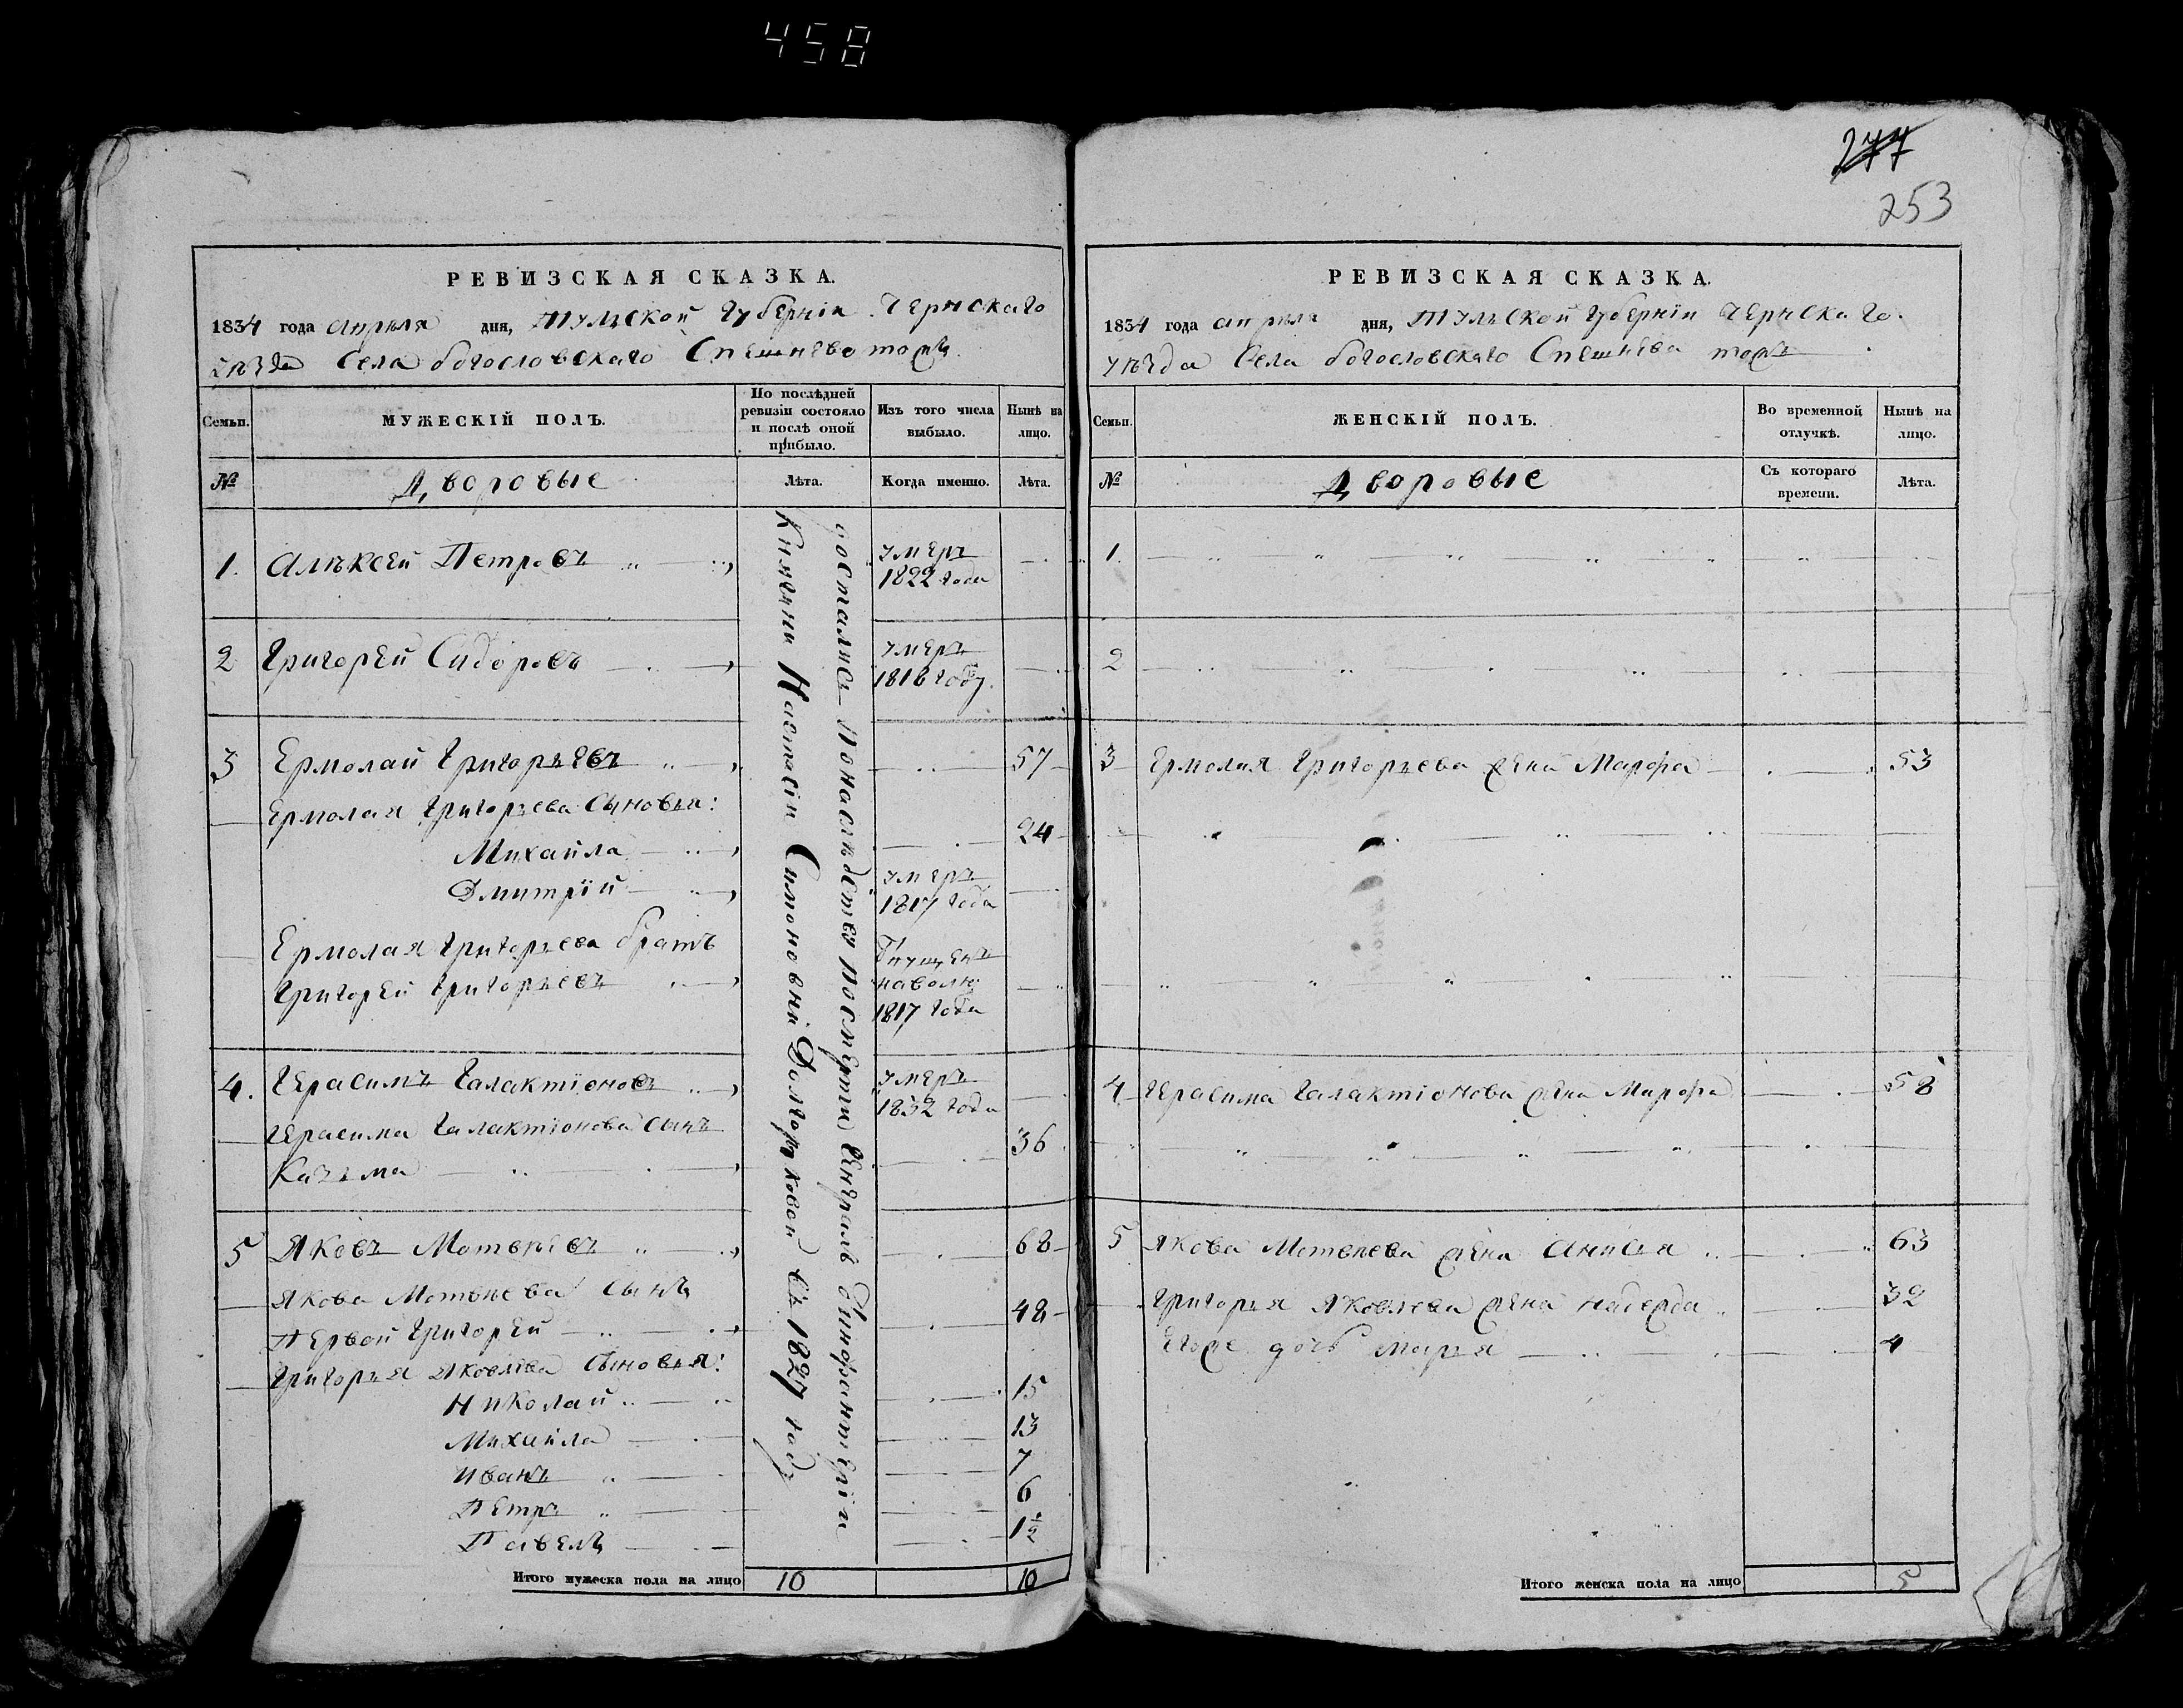 458
РЕВИЗСКАЯ СКАЗКА.
1834 года апреля дня, Тульской Губернiи Чернскаго
уѣзда Села богословскаго Спешнево тожъ
Семьи.
МУЖЕСКІЙ ПОЛЪ.
По послѣдней ревизіи состояло и послѣ оной прибыло.
Изъ того числа выбыло.
Нынѣ на лицо.
№
Дворовые
Лѣта.
Когда именно.
Лѣта.
досталисъ понаследству посмерти Генералъ
Княжны Настасiи Симоновны Долгоруковой въ 1827 году
1. Алѣксей Петровъ
умеръ
1822 года
2 Григорей Сидоровъ
умеръ
1816 году
3 Ермолай Григорьевъ 57
Ермолая Григорьева Сыновья:
Михайла 24
Дмитрiй
умеръ
1817 года
Ермолая Григорьева братъ
Григорей Григорьевъ
наволю
1817 года
4. Герасимъ Галактiоновъ
умеръ
1832 года
Герасима Галактiонова Сынъ
Казьма 36
5 Яковъ Мотвѣевъ 68
Якова Мотвѣева Сынъ
Первой Григорей 48
Григорья Яковлева Сыновья:
Николай 15
Михайла 13
Иванъ 7
Петръ 6
Павелъ 1½
Итого мужеска пола на лицо 10 10
277
253
РЕВИЗСКАЯ СКАЗКА.
1834 года апреля дня, Тульской Губернiи Чернскаго
уѣзда Села богословскаго Спешнева тожъ
Семьи.
ЖЕНСКІЙ ПОЛЪ.
Во временной отлучкѣ.
Нынѣ на лицо.
№
Дворовые
Съ котораго времени.
Лѣта.
1.
2
3 Ермолая Григорьева жена Марфа 53
4 Герасима Галактiонова жена Марфа 58
5 Якова Мотвѣева жена Анисья 63
Григорья Яковлева жена надежда 32
Егоже дочь Марья 4
Итого женска пола на лицо 5